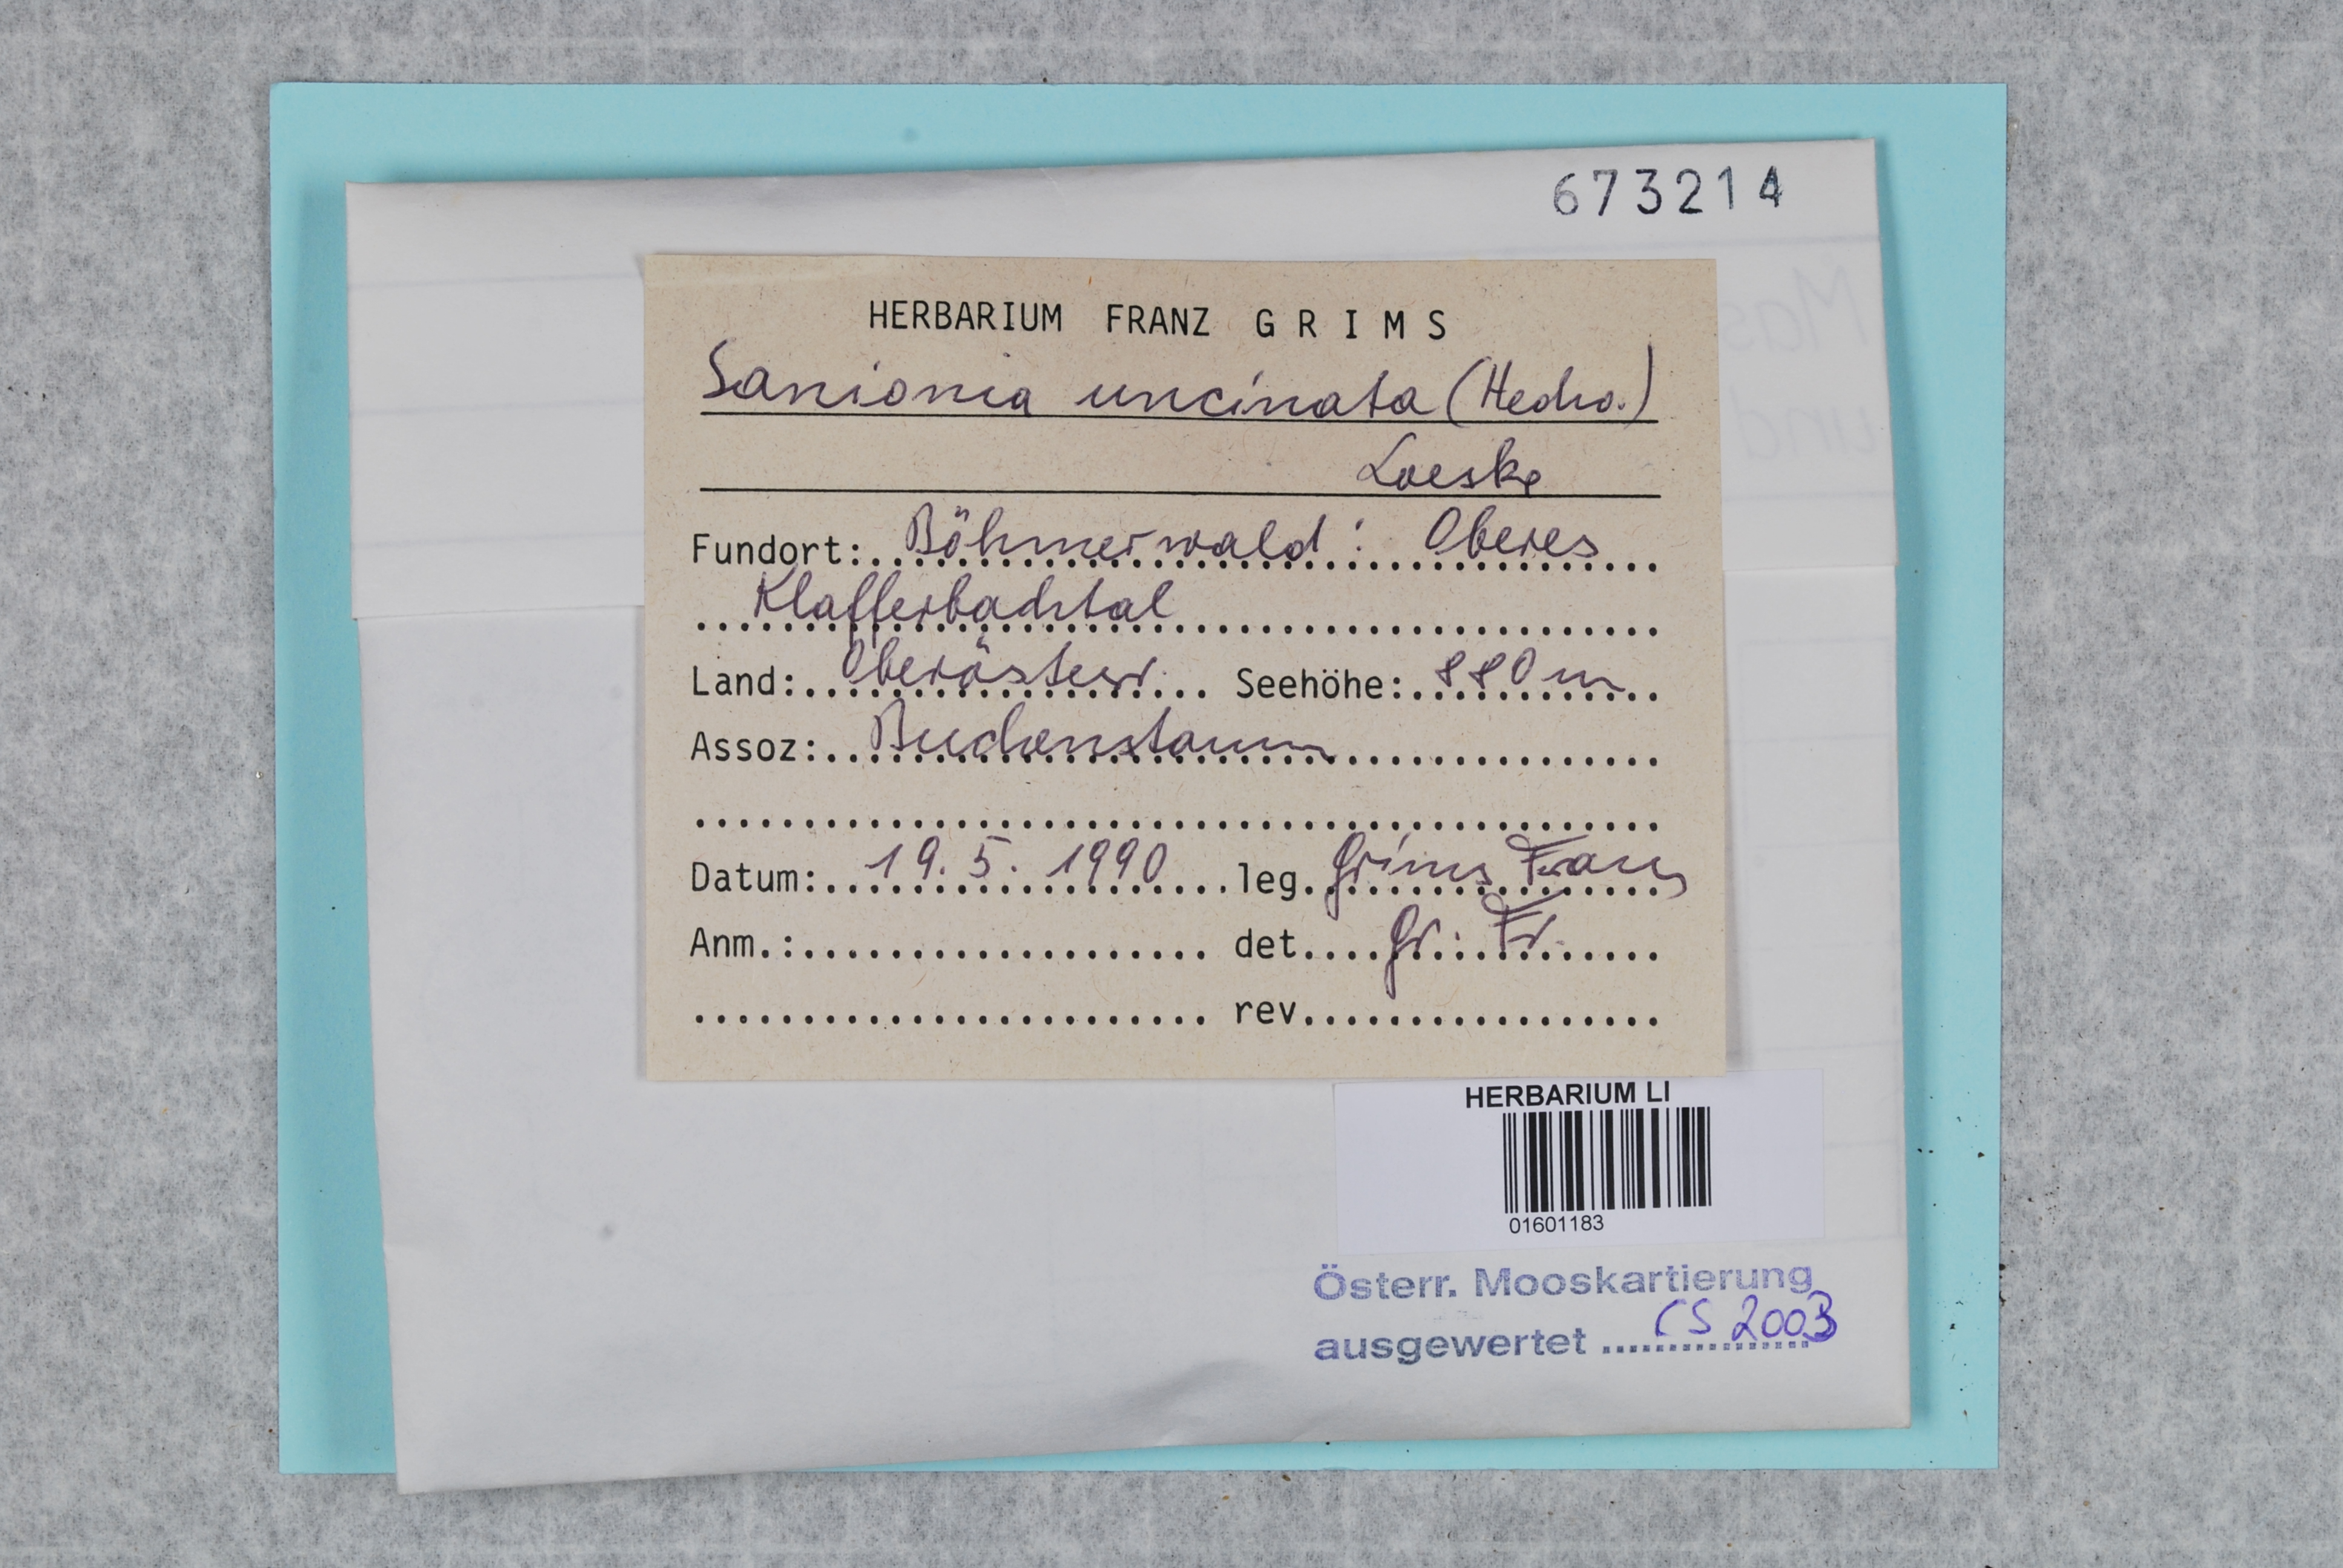 673214
HERBARIUM FRANZ GRIMS
Sanionia uncinata (Hedw.)
Loeske
Fundort: Böhmerwald: Oberes
Klafferbachtal
Land: Oberösterr. Seehöhe: 880 m
Assoz: Buchenstamm
Datum: 19. 5. 1990 leg. Grims Franz
Anm.: det. Gr. Fr.
rev.
HERBARIUM LI
01601183
Österr. Mooskartierung
ausgewertet CS 2003